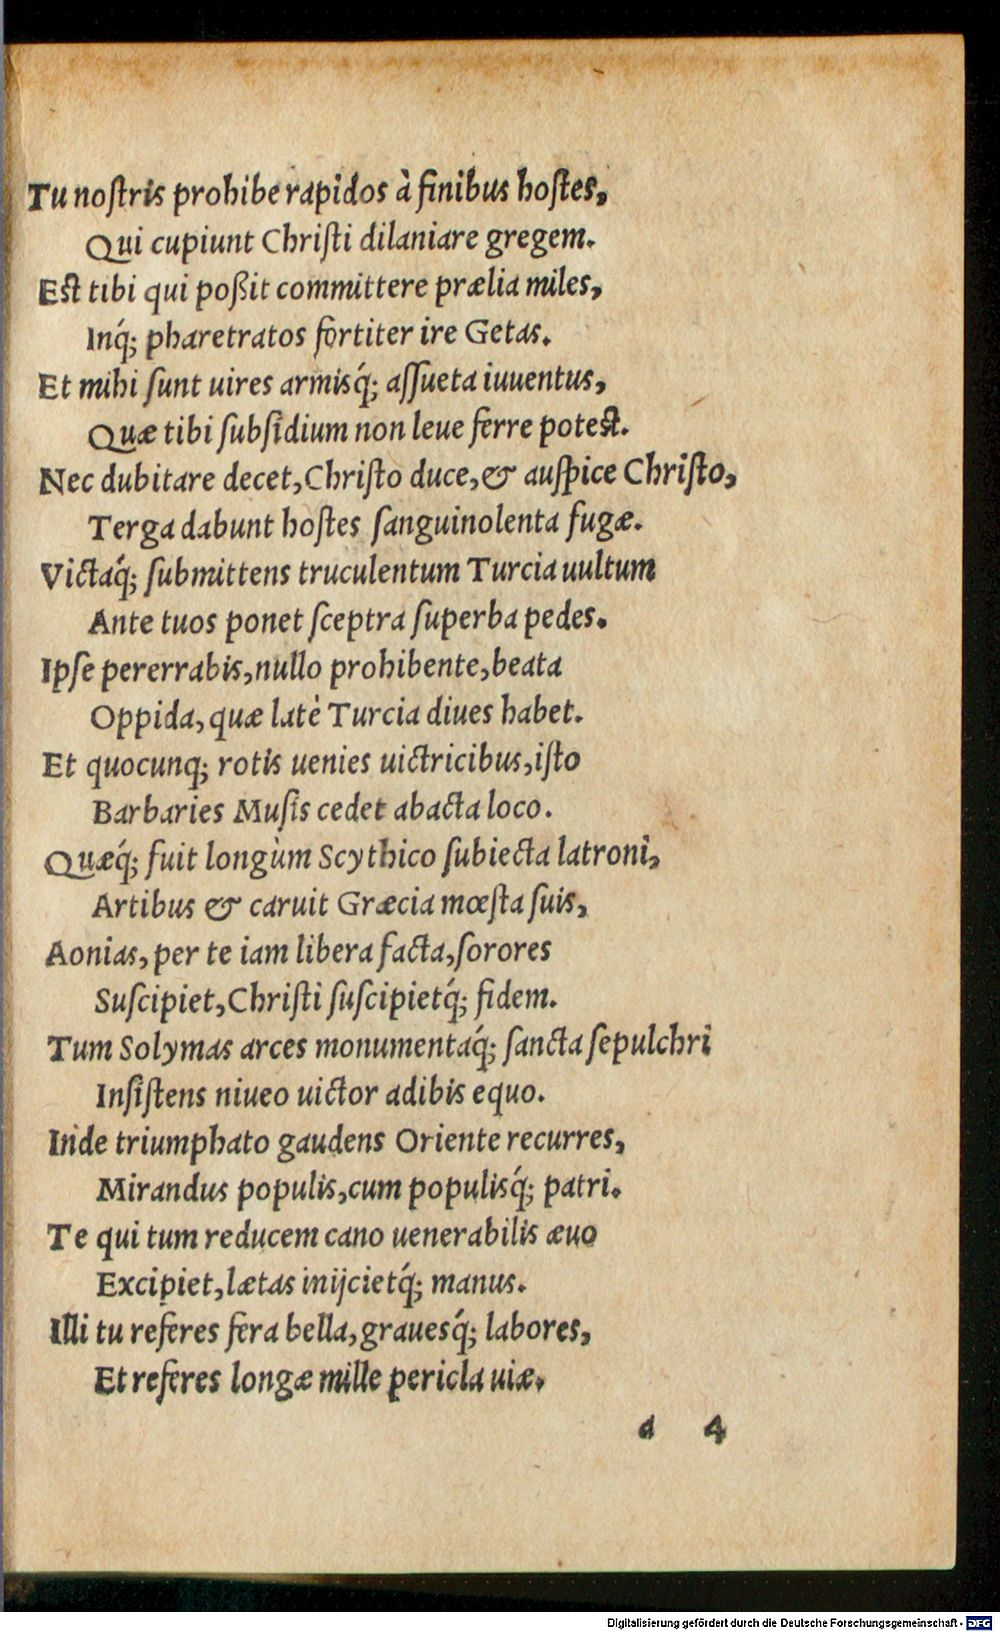 Tu noſtris prohibe rapidos à finibus hoſtes,
Qui cupiunt Chriſti dilaniare gregem.
Est tibi qui poßit committere prælia miles,
Inq́; pharetratos fortiter ire Getas.
Et mihi ſunt uires armisq́; aſſueta iuuentus,
Quæ tibi ſubſidium non leue ferre potest.
Nec dubitare decet, Chriſto duce, & auſpice Chriſto,
Terga dabunt hoſtes ſanguinolenta fugæ.
Victaq́; ſubmittens truculentum Turcia uultum
Ante tuos ponet ſceptra ſuperba pedes.
Ipſe pererrabis, nullo prohibente, beata
Oppida, quæ latè Turcia diues habet.
Et quocunq; rotis uenies uictricibus, iſto
Barbaries Muſis cedet abacta loco.
Quæq́; fuit longùm Scythico ſubiecta latroni,
Artibus & caruit Græcia mœſta ſuis,
Aonias, per te iam libera facta, ſorores
Suſcipiet, Chriſti ſuſcipietq́; fidem.
Tum Solymas arces monumentaq́; ſancta ſepulchri
Inſiſtens niueo uictor adibis equo.
Inde triumphato gaudens Oriente recurres,
Mirandus populis, cum populisq́; patri.
Te qui tum reducem cano uenerabilis æuo
Excipiet, lætas inijcietq́; manus.
Illi tu referes fera bella, grauesq́; labores,
Et referes longæ mille pericla uiæ.
d 4
Digitalisierung gefördert durch die Deutsche Forschungsgemeinschaft - DFG